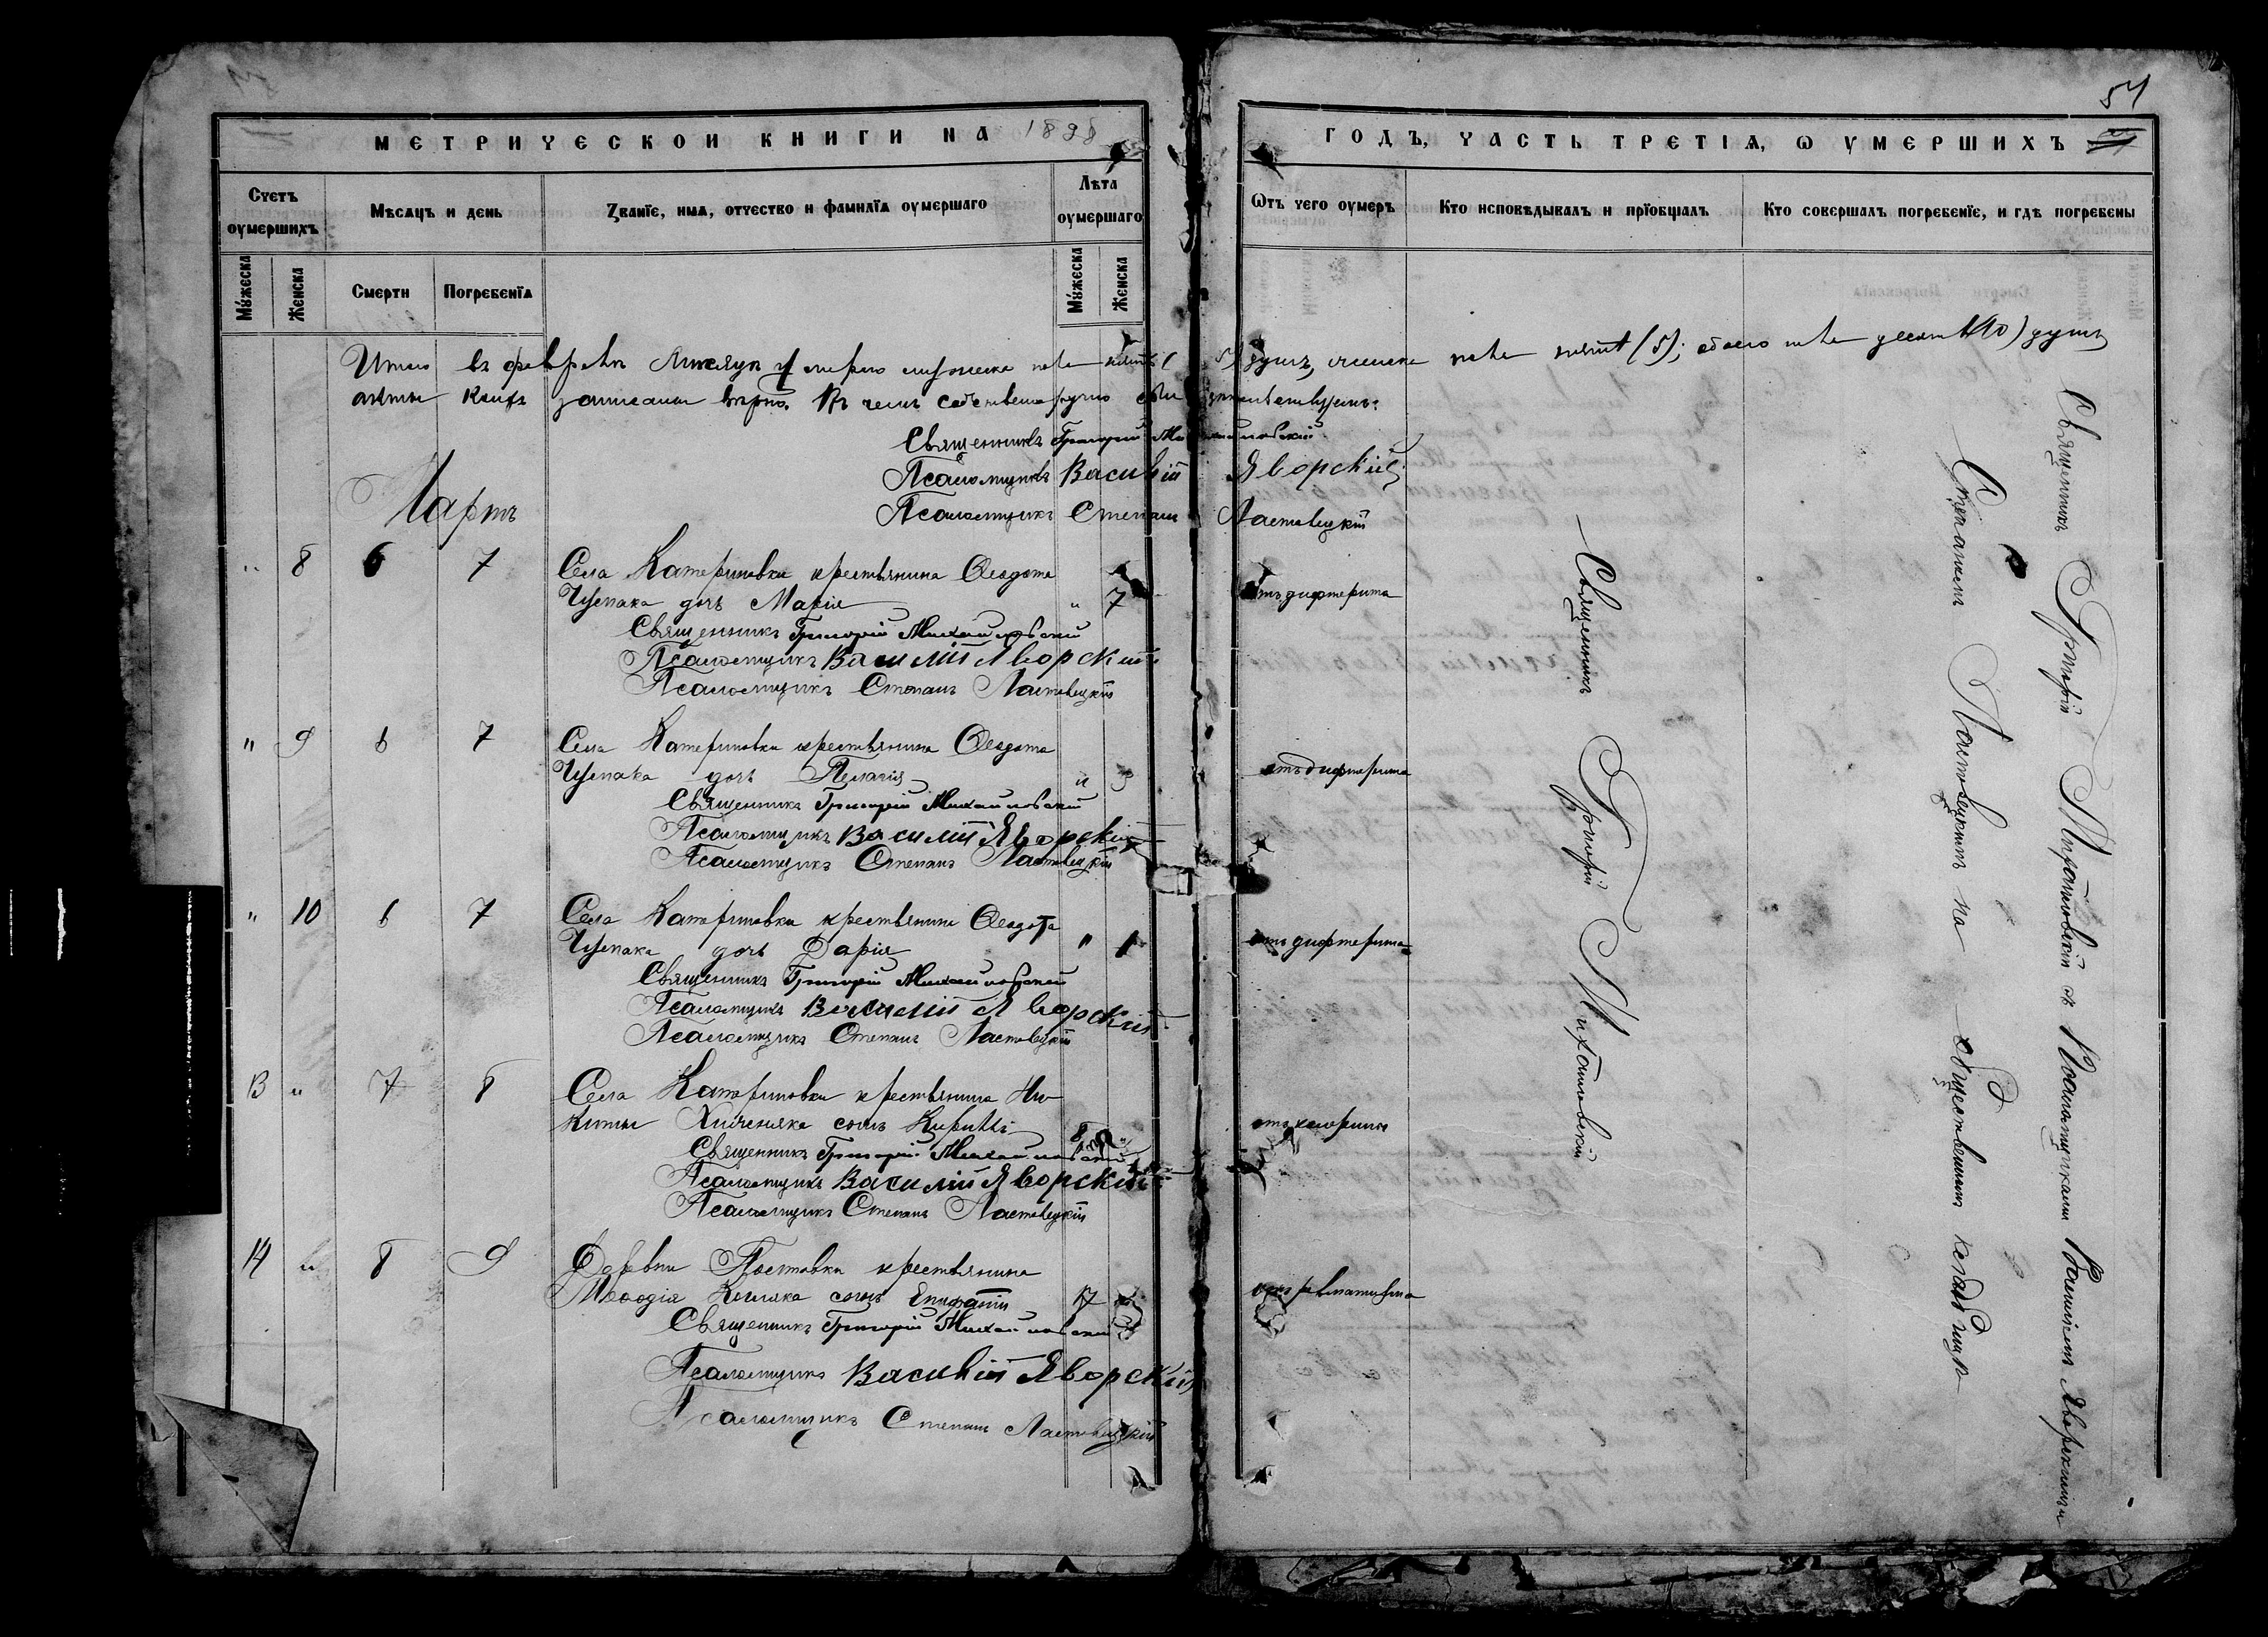 МЕТРИЧЕСКОЙ КНИГИ НА 1898 ГОДЪ, ЧАСТЬ ТРЕТІѦ, Ѡ УМЕРШИХЪ
54
Счетъ оумершихъ
Мѣсѧцъ и день
Званїе, имѧ, отчество и фамилїѧ оумершаго
Лѣта оумершаго
Ѿтъ чего оумеръ
Кто исповѣдывалъ и прїобщалъ
Кто совершалъ погребенїе, и гдѣ погребены
Мужеска
Женска
Смерти
Погребенїѧ
Мужеска
Женска
Итого въ февралѣ мѣсяцѣ умерло мужеска пола пять (5) душъ, женска пола пять (5); обоего пола десять (10) душъ
акты записаны вѣрно. Въ чемъ собственноручно
Священникъ Григорій Михайловскій
Псаломщикъ Василій Яворскій
Псаломщикъ Степанъ Ластовецкій
Мартъ
" 8 6 7 Села Катериновки крестьянина Ѳеодота
дочь Марія " 7 отъ дифтерита
Священникъ Григорій Михайловскій
Псаломщикъ Василій Яворскій
Псаломщикъ Степанъ Ластовецкій
" 9 6 7 Села Катериновки крестьянина Ѳеодота
дочь Пелагія " 3 отъ дифтерита
Священникъ Григорій Михайловскій
Псаломщикъ Василій Яворскій
Псаломщикъ Степанъ Ластовецкій
" 10 6 7 Села Катериновки крестьянина Ѳеодота
дочь Дарія " 1 отъ дифтерита
Священникъ Григорій Михайловскій
Псаломщикъ Василій Яворскій
Псаломщикъ Степанъ Ластовецкій
13 " 7 8 Села Катериновки крестьянина Ни-
киты сынъ Кириллъ
Священникъ Григорій Михайловскій
Псаломщикъ Василій Яворскій
Псаломщикъ Степанъ Ластовецкій
14 " 8 9 Деревни крестьянина
сынъ Епифаній 17 отъ ревматизма
Священникъ Григорій Михайловскій
Псаломщикъ Василій Яворскій
Псаломщикъ Степанъ Ластовецкій
Священникъ Григорій Михайловскій
Священникъ Григорій Михайловскій съ Псаломщиками Василіемъ Яворскимъ и
Степаномъ Ластовецкимъ на общественномъ кладбищѣ